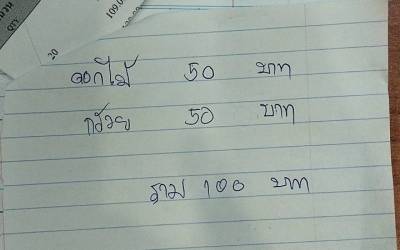 QTY
20
109.0
ดอกไม้ 50 บาท
กล้วย 50 บาท
รวม 100 บาท